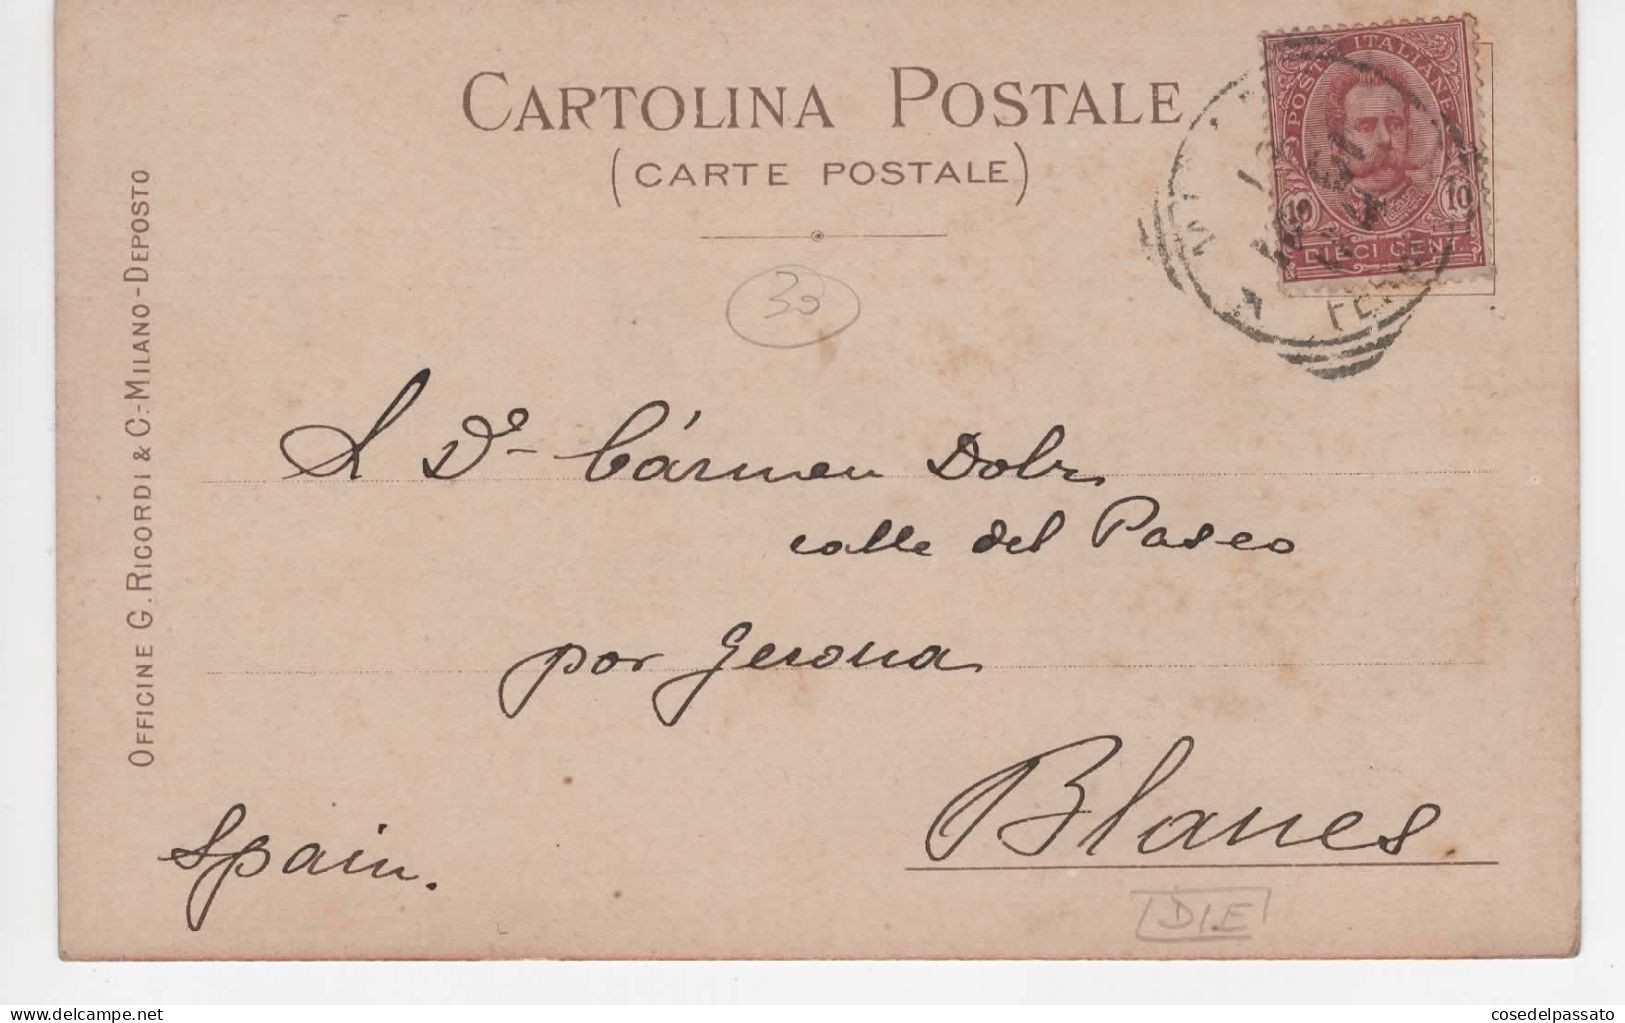 CARTOLINA POSTALE
(CARTE POSTALE)
POSTE ITALIANE
10 10
DIECI CENT.
OFFICINE G. RICORDI & C.-MILANO-DEPOSTO
30
A Dª Cármen Dolz
calle del Paseo
por Gerona
Blanes.
Spain.
D.E
delcampe.net
cosedelpassato